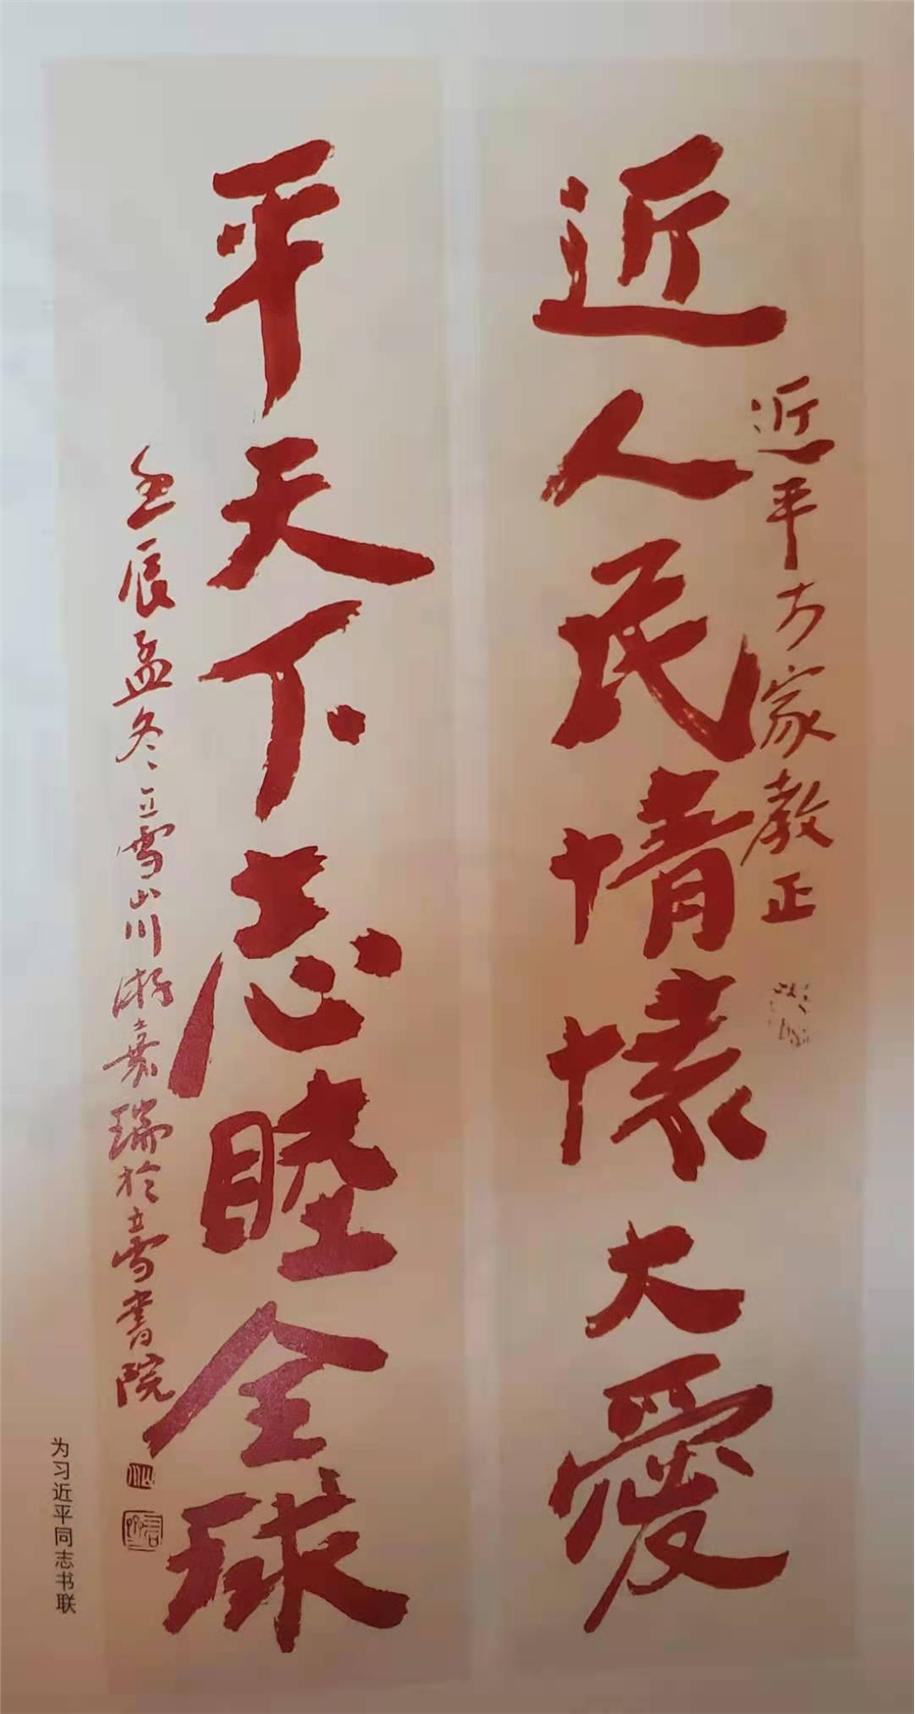 近人民情怀大愛
近平方家教正
平天下志睦全球
壬辰孟冬立雪山川游嘉瑞於立雪書院
为习近平同志书联